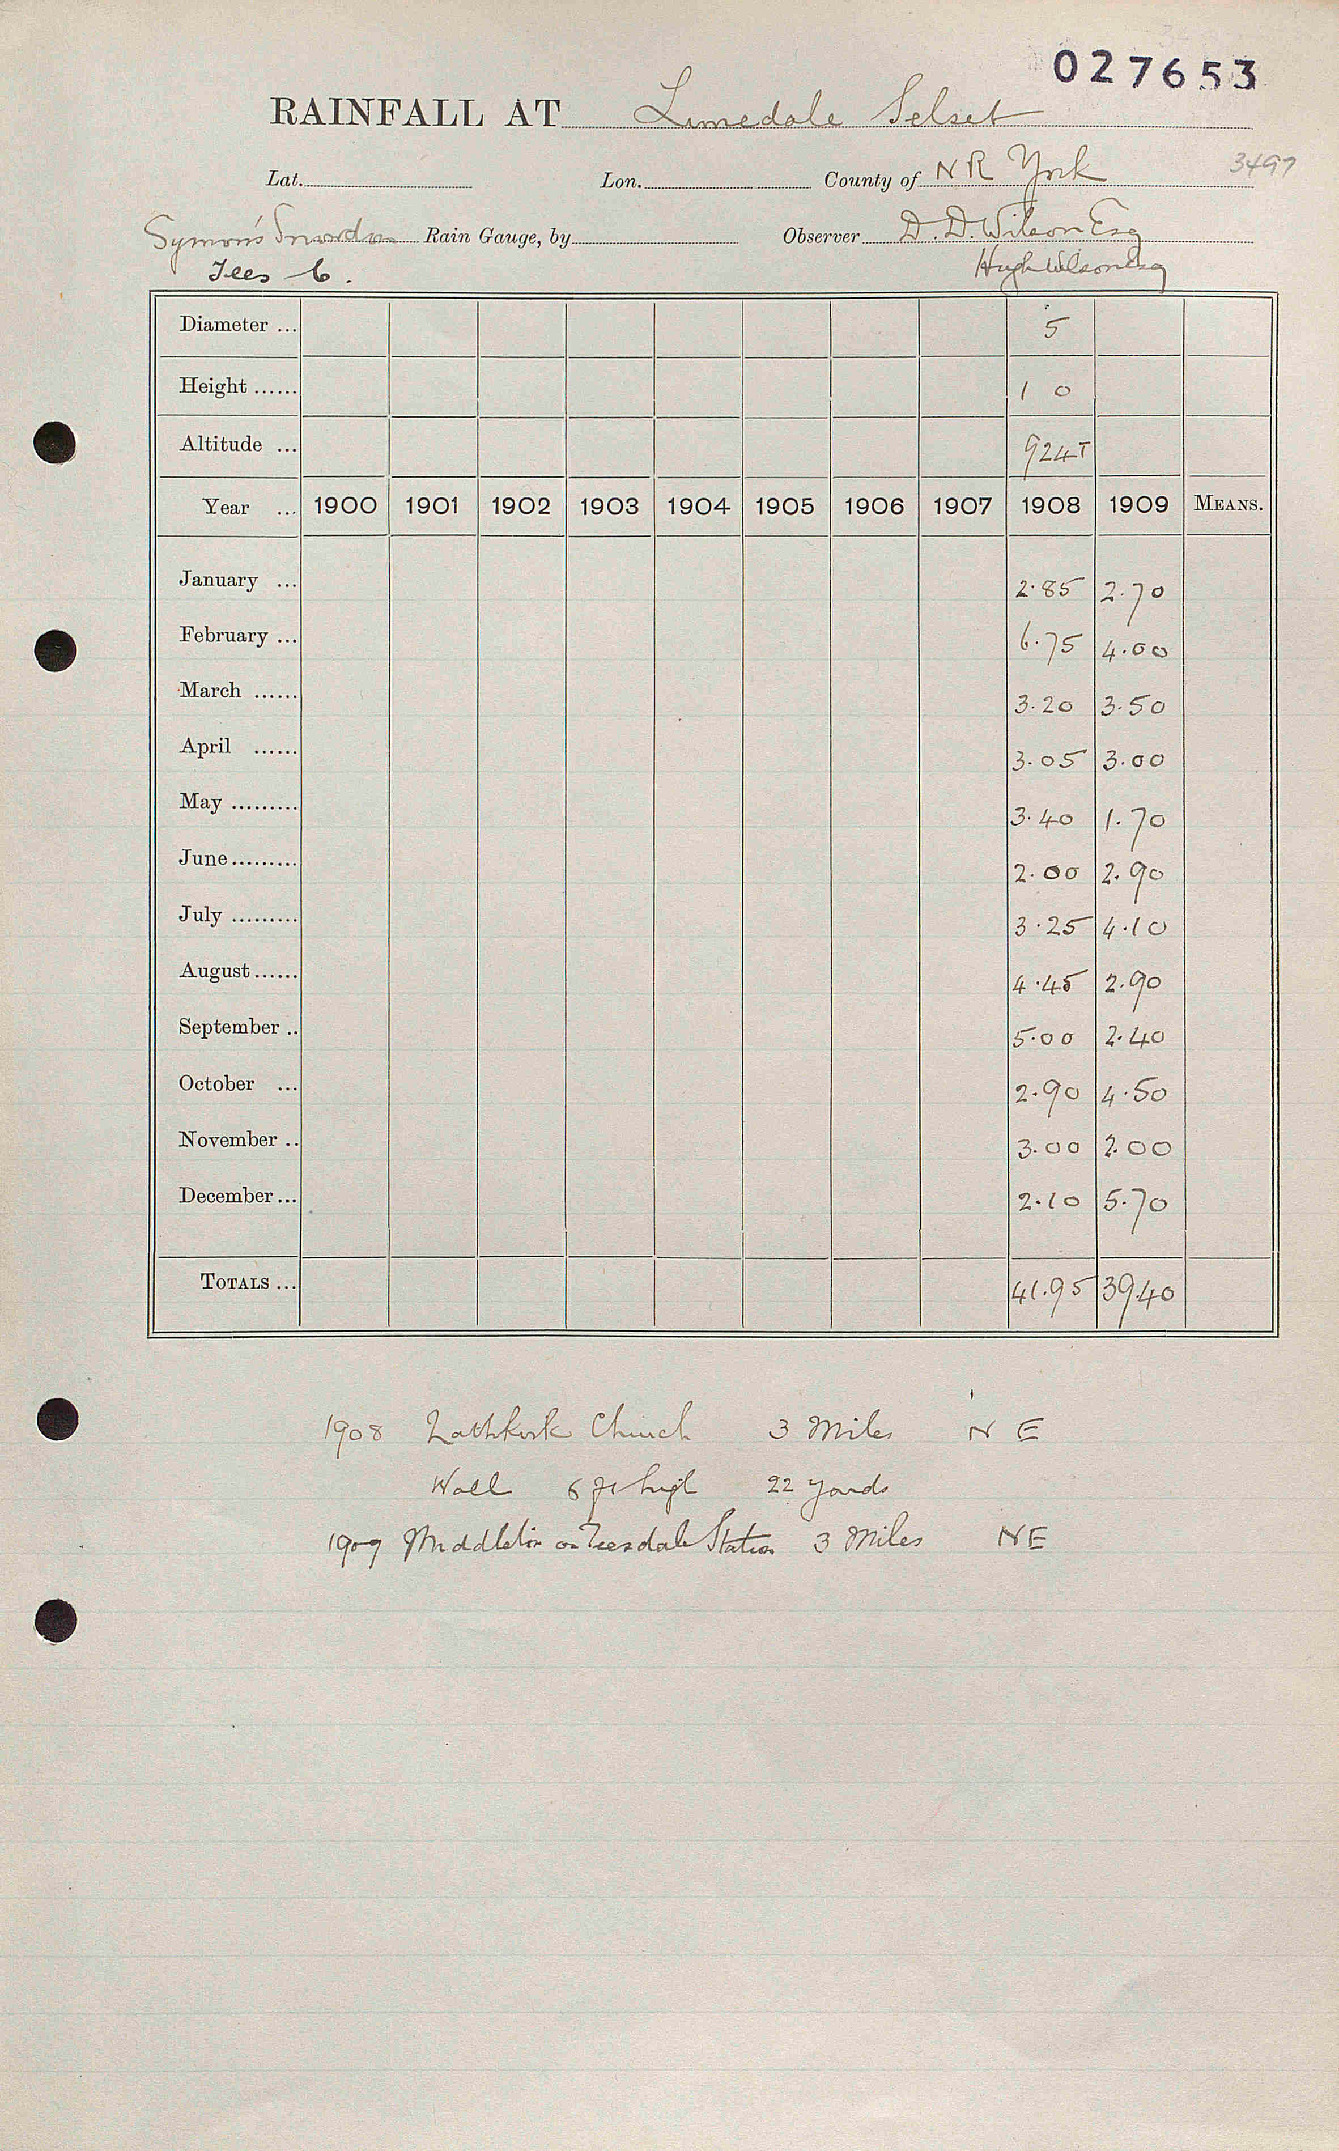 027653
RAINFALL AT Lunedale Selset
3497
Lat. Lon. County of NR York
Symon's Snowdon Rain Gauge, by Observer D. D. Wilson Esq
Tees 6. Hugh Wilson Esq
Diameter ... 5
Height ...... 1 0
Altitude ... 924T
Year ... 1900 1901 1902 1903 1904 1905 1906 1907 1908 1909 MEANS.
January ... 2.85 2.70
February ... 6.75 4.00
March ...... 3.20 3.50
April ...... 3.05 3.00
May ......... 3.40 1.70
June ......... 2.00 2.90
July ......... 3.25 4.10
August ...... 4.45 2.90
September .. 5.00 2.40
October ... 2.90 4.50
November .. 3.00 2.00
December ... 2.10 5.70
TOTALS ... 41.95 39.40
1908 Church 3 Miles N E
Wall 6 ft high 22 yards
1909 Middleton on Teesdale Station 3 Miles NE